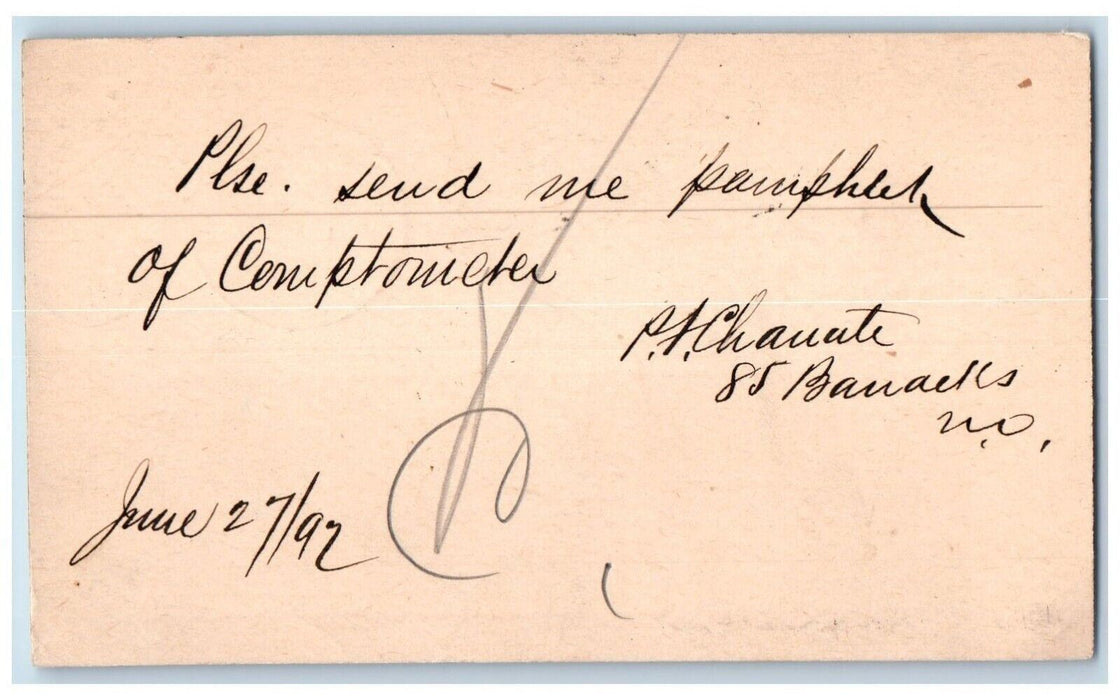 Plse. send me pamphlet
of Comptometer
P.A. Chanute
85 Barracks
N.O.
June 27/92